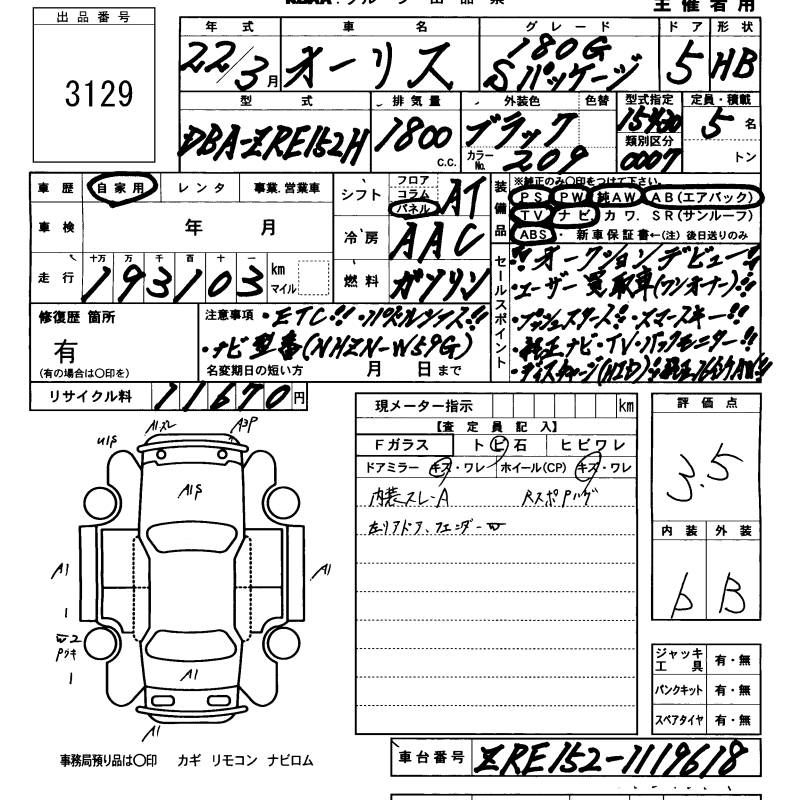 主催者用
出品番号
3129
年式 車名 グレード ドア 形状
22/3月 オーリス 180G Sパッケージ 5 HB
型式 排気量 外装色 色替 型式指定 定員・積載
DBA-ZRE152H 1800 c.c. ブラック カラーNo. 209 類別区分 0007 5 名 トン
車歴 自家用 レンタ 事業.営業車
車検 年 月
走行 十万 万 千 百 十 一
193103 km マイル
シフト フロア コラム パネル AT
冷房 AAC
燃料 ガソリン
装備品 ※純正のみ○印をつけて下さい。
PS PW 純AW AB(エアバック)
TV ナビ カワ. SR(サンルーフ)
ABS・ 新車保証書←(注)後日送りのみ
セールスポイント
!!オークションデビュー!!
・ユーザー買取車(ワンオーナー)!!
・プッシュスタート!!・スマートキー!!
・純正ナビ・TV・バックモニター!!
・ディスチャージ(HID)!!純正16インチAW!!
修復歴 箇所
有
(有の場合は○印を)
注意事項 ・ETC!!・パドルシフト!!
・ナビ型番(NHZN-W59G)
名変期日の短い方 月 日まで
リサイクル料 11670円
現メーター指示 km
【査定員記入】
Fガラス トビ石 ヒビワレ
ドアミラー キズ・ワレ ホイール(CP) キズ・ワレ
内装スレ-A
左リアドア、フェンダーW
評価点
3.5
内装 外装
b B
A1スレ
A3P
U1S
A1S
A1
A1
W2
Pツキ
A1
A1
ジャッキ工具 有・無
パンクキット 有・無
スペアタイヤ 有・無
事務局預り品は○印 カギ リモコン ナビロム
車台番号 ZRE152-1119618